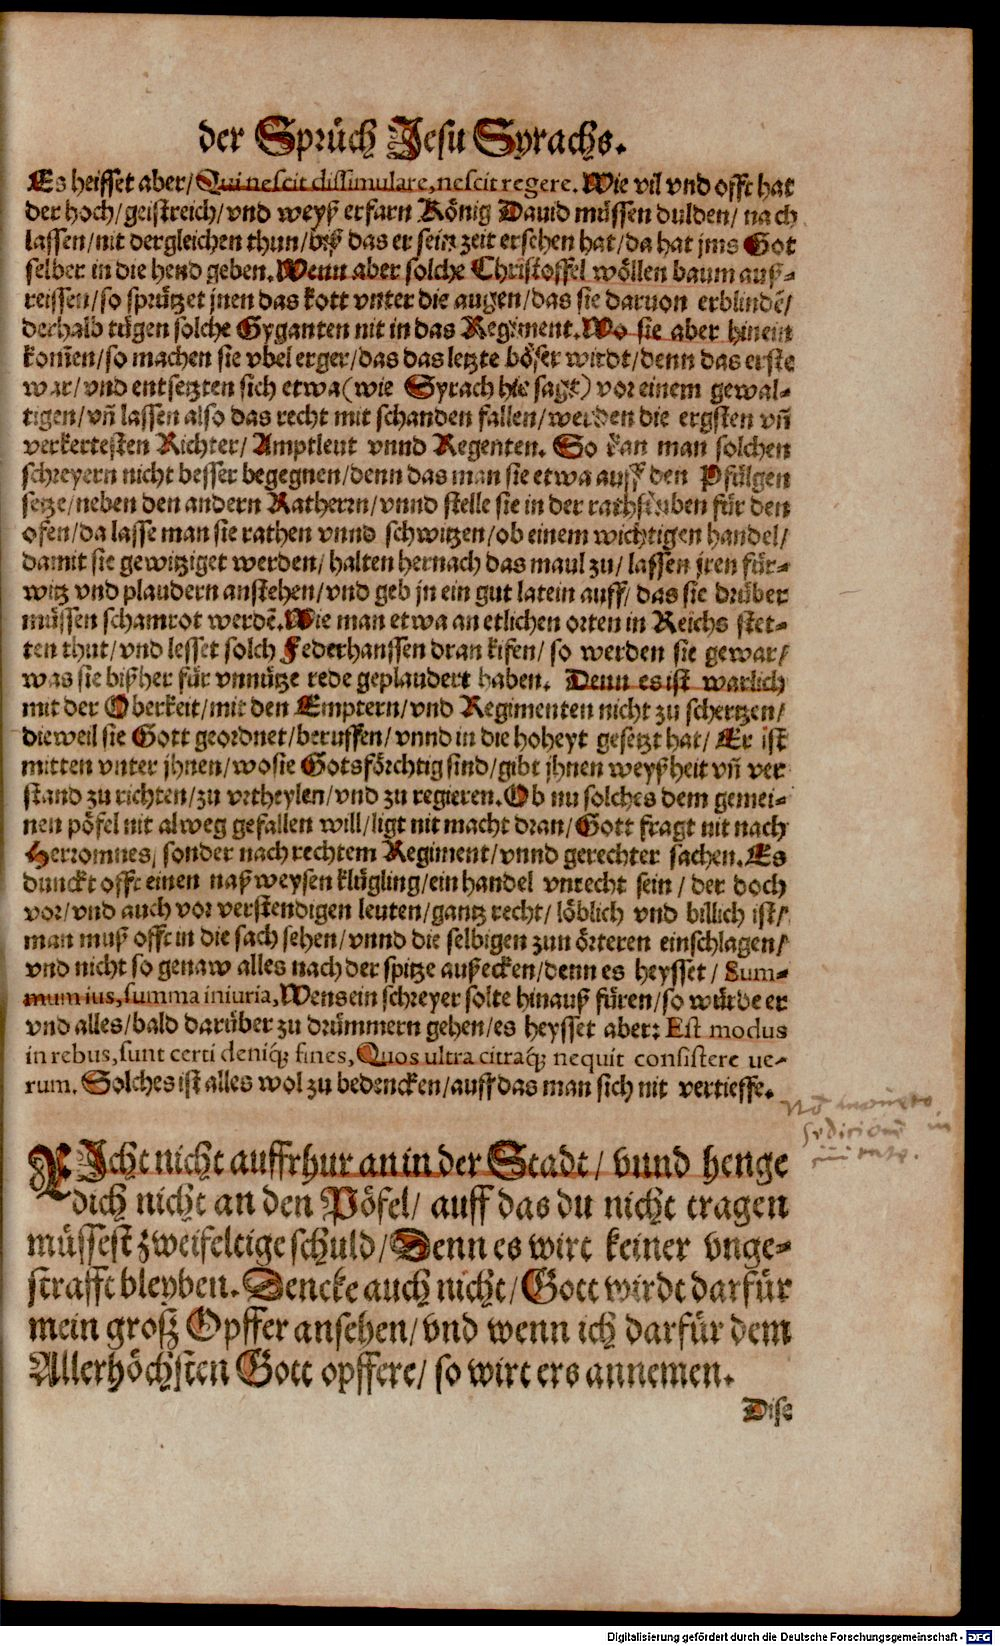 der Sprüch Jesu Syrachs.
Es heisset aber/ Qui nescit dissimulare, nescit regere. Wie vil vnd offt hat
der hoch/ geistreich/ vnd weyß erfarn König Dauid müssen dulden/ nach
lassen/ nit dergleichen thun/ biß das er sein zeit ersehen hat/ da hat jms Got
selber in die hend geben. Wenn aber solche Christoffel wöllen baum auß-
reissen/ so sprützet jnen das kott vnter die augen/ das sie daruon erblindẽ/
derhalb tügen solche Gyganten nit in das Regiment. Wo sie aber hinein
kom̃en/ so machen sie vbel erger/ das das letzte böser wirdt/ denn das erste
war/ vnd entsetzten sich etwa (wie Syrach hie sagt) vor einem gewal-
tigen/ vñ lassen also das recht mit schanden fallen/ werden die ergsten vñ
verkertesten Richter/ Amptleut vnnd Regenten. So kan man solchen
schreyern nicht besser begegnen/ denn das man sie etwa auff den Pfülgen
setze/ neben den andern Ratherrn/ vnnd stelle sie in der rathstuben für den
ofen/ da lasse man sie rathen vnnd schwitzen/ ob einem wichtigen handel/
damit sie gewitziget werden/ halten hernach das maul zu/ lassen jren für-
witz vnd plaudern anstehen/ vnd geb jn ein gut latein auff/ das sie drüber
müssen schamrot werdẽ. Wie man etwa an etlichen orten in Reichs stet-
ten thut/ vnd lesset solch Federhanssen dran kifen/ so werden sie gewar/
was sie bißher für vnnütze rede geplaudert haben. Denn es ist warlich
mit der Oberkeit/ mit den Emptern/ vnd Regimenten nicht zu schertzen/
dieweil sie Gott geordnet/ beruffen/ vnnd in die hoheyt gesetzt hat/ Er ist
mitten vnter jhnen/ wo sie Gotsförchtig sind/ gibt jhnen weyßheit vñ ver
stand zu richten/ zu vrtheylen/ vnd zu regieren. Ob nu solches dem gemei-
nen pöfel nit alweg gefallen will/ ligt nit macht dran/ Gott fragt nit nach
Herromnes/ sonder nach rechtem Regiment/ vnnd gerechter sachen. Es
dunckt offt einen naß weysen klügling/ ein handel vnrecht sein/ der doch
vor/ vnd auch vor verstendigen leuten/ gantz recht/ löblich vnd billich ist/
man muß offt in die sach sehen/ vnnd die selbigen zun örteren einschlagen/
vnd nicht so genaw alles nach der spitze außecken/ denn es heysset/ Sum-
mum ius, summa iniuria, Wens ein schreyer solte hinauß füren/ so würde er
vnd alles/ bald darüber zu drümmern gehen/ es heysset aber: Est modus
in rebus, sunt certi deniq́; fines, Quos ultra citraq́; nequit consistere ue-
rum. Solches ist alles wol zu bedencken/ auff das man sich nit vertieffe.
in
RIcht nicht auffrhur an in der Stadt/ vnnd henge
dich nicht an den Pöfel/ auff das du nicht tragen
müssest zweifeltige schuld/ Denn es wirt keiner vnge-
strafft bleyben. Dencke auch nicht/ Gott wirdt darfür
mein groß Opffer ansehen/ vnd wenn ich darfür dem
Allerhöchsten Gott opffere/ so wirt ers annemen.
Dise
Digitalisierung gefördert durch die Deutsche Forschungsgemeinschaft - DFG